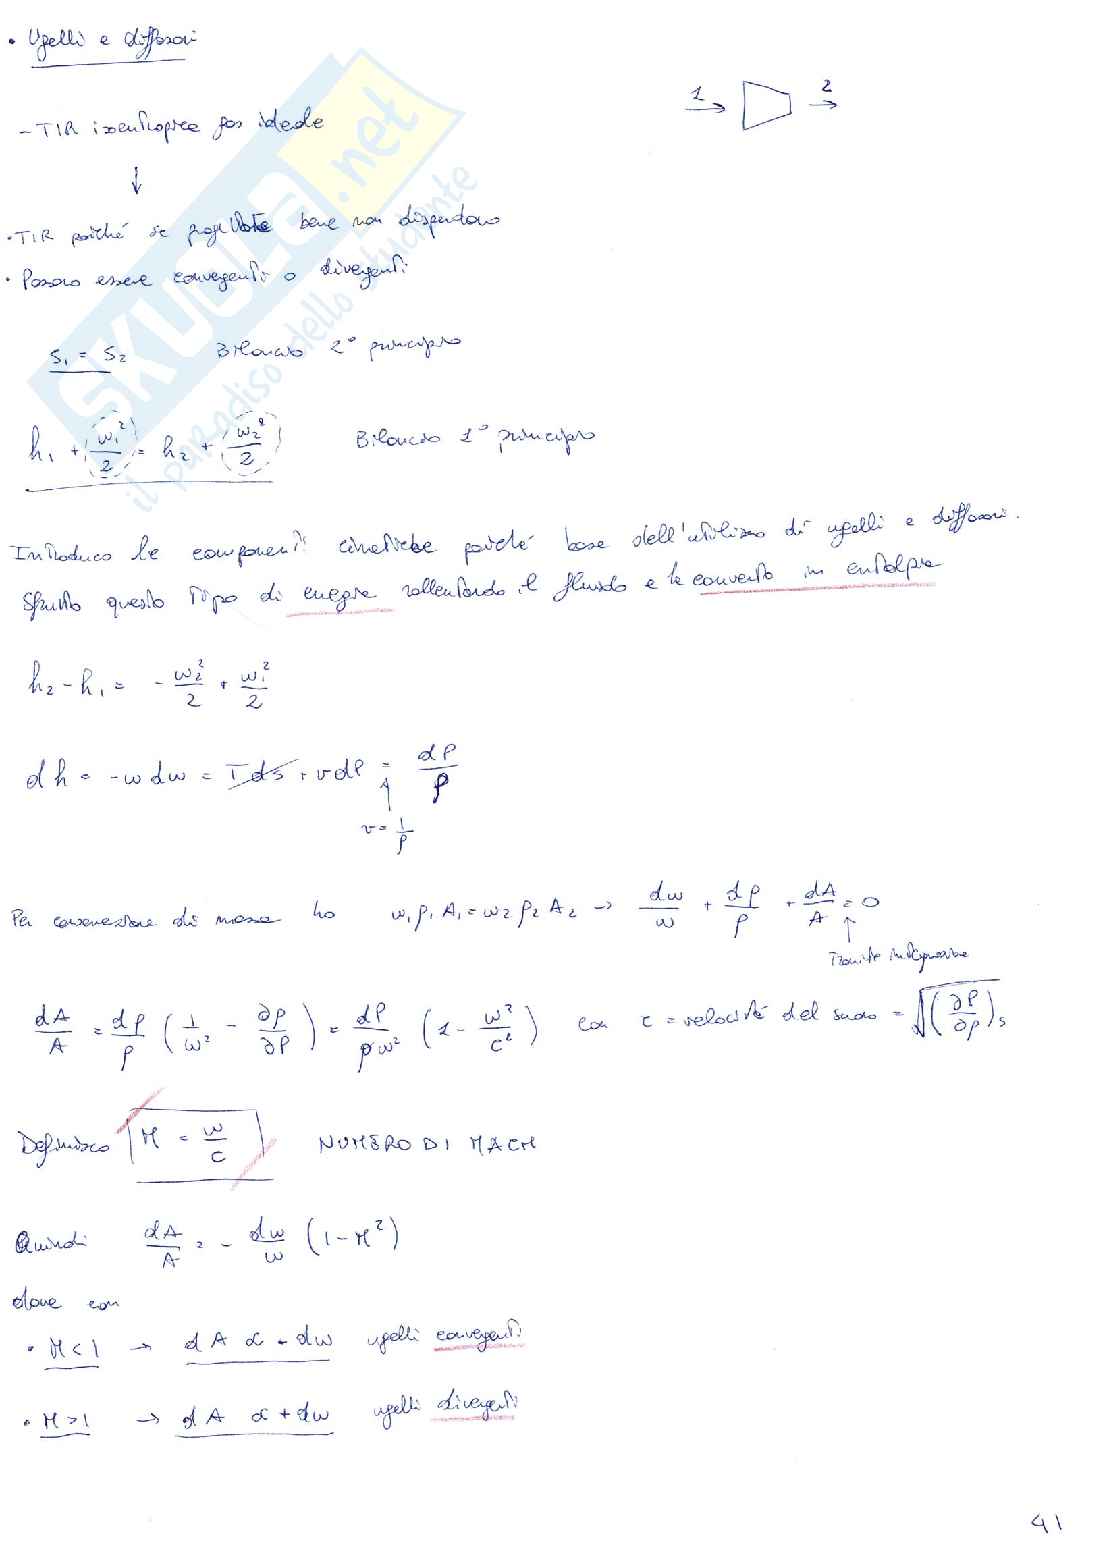 • Ugelli e diffusori
1 2
- TIR isentropica gas ideale
↓
• TIR poiché se progettate bene non disperdono
• Possono essere convergenti o divergenti
s₁ = s₂ Bilancio 2° principio
h₁ + w₁²/2 = h₂ + w₂²/2 Bilancio 1° principio
Introduco le componenti cinetiche poiché base dell'utilizzo di ugelli e diffusori.
Sfrutto questo tipo di energia rallentando il fluido e la converto in entalpia
h₂ - h₁ = - w₂²/2 + w₁²/2
dh = -w dw = Tds + vdP = dP/ρ
v = 1/ρ
Per conservazione di massa ho w₁ρ₁A₁ = w₂ρ₂A₂ → dw/w + dρ/ρ + dA/A = 0
Tramite integrazione
dA/A = dρ/ρ (1/w² - ∂ρ/∂P) = dP/ρw² (1 - w²/c²) con c = velocità del suono = √(∂P/∂ρ)s
Definisco M = w/c NUMERO DI MACH
Quindi dA/A = - dw/w (1-M²)
dove con
• M<1 → dA α - dw ugelli convergenti
• M>1 → dA α + dw ugelli divergenti
41
SKUOLA.net
il paradiso dello studente